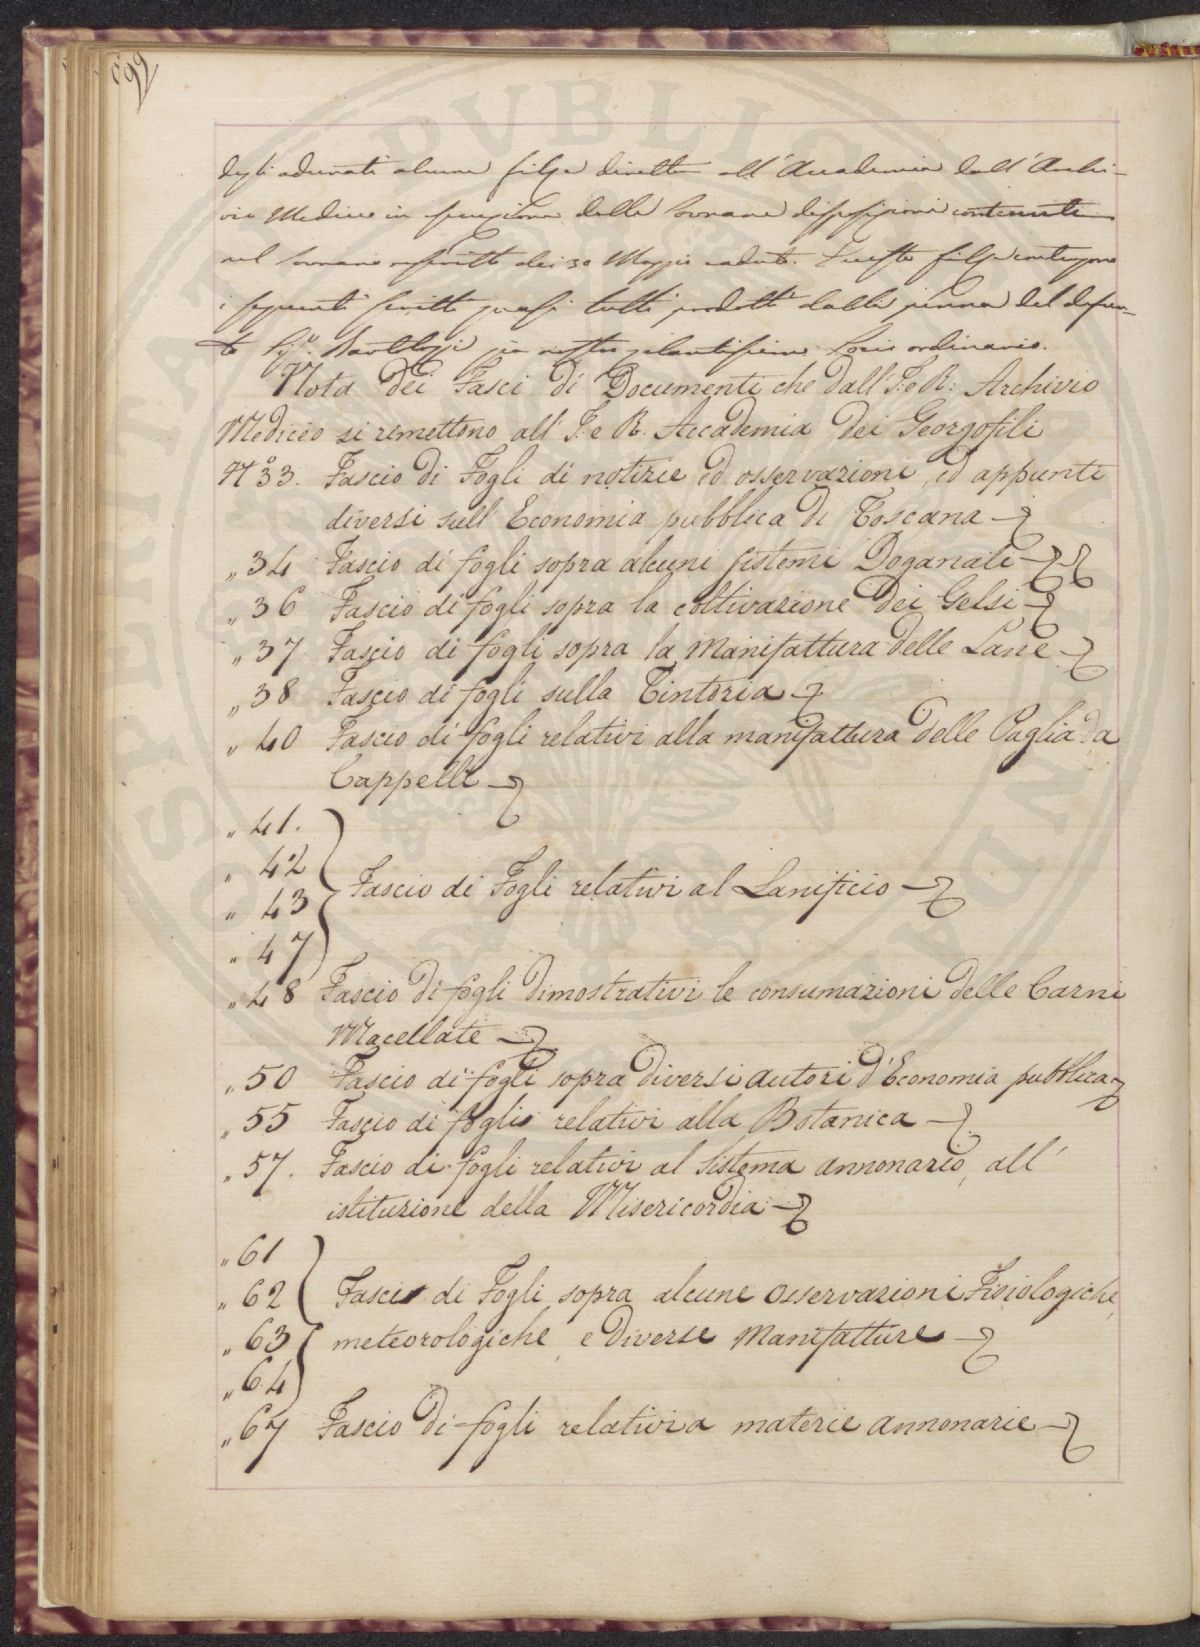 99
degli adunati alcune filze dirette all'Accademia dall'Archi-
vio Mediceo in esecuzione delle Sovrane disposizioni contenute
nel Sovrano rescritto dei 30 Maggio caduto. Queste filze contengono
i seguenti scritti quasi tutti prodotti dalla penna del defun-
to Sigr. già nostro zelantissimo Socio ordinario.
Nota dei Fasci di Documenti che dall'I. e R. Archivio
Mediceo si remettono all'I. e R. Accademia dei Georgofili
N° 33. Fascio di Fogli di notizie ed osservazioni, ed appunti
diversi sull'Economia pubblica di Toscana
„ 34 Fascio di fogli sopra alcuni sistemi Doganali
„ 36 Fascio di fogli sopra la coltivazione dei Gelsi
„ 37 Fascio di fogli sopra la Manifattura delle Lane
„ 38 Fascio di fogli sulla Tintoria
„ 40 Fascio di fogli relativi alla manifattura delle Paglia da
Cappelli
„ 41.
„ 42
„ 43 Fascio di Fogli relativi al Lanificio
„ 47
„ 48 Fascio di fogli dimostrativi le consumazioni delle Carni
Macellate
„ 50 Fascio di fogli sopra diversi autori d'Economia pubblica
„ 55 Fascio di fogli relativi alla Botanica
„ 57. Fascio di fogli relativi al Sistema annonario, all'
istituzione della Misericordia
„ 61
„ 62 Fascio di Fogli sopra alcune osservazioni Fisiologiche,
„ 63 meteorologiche, e diverse Manifatture
„ 64
„ 67 Fascio di fogli relativi a materie annonarie